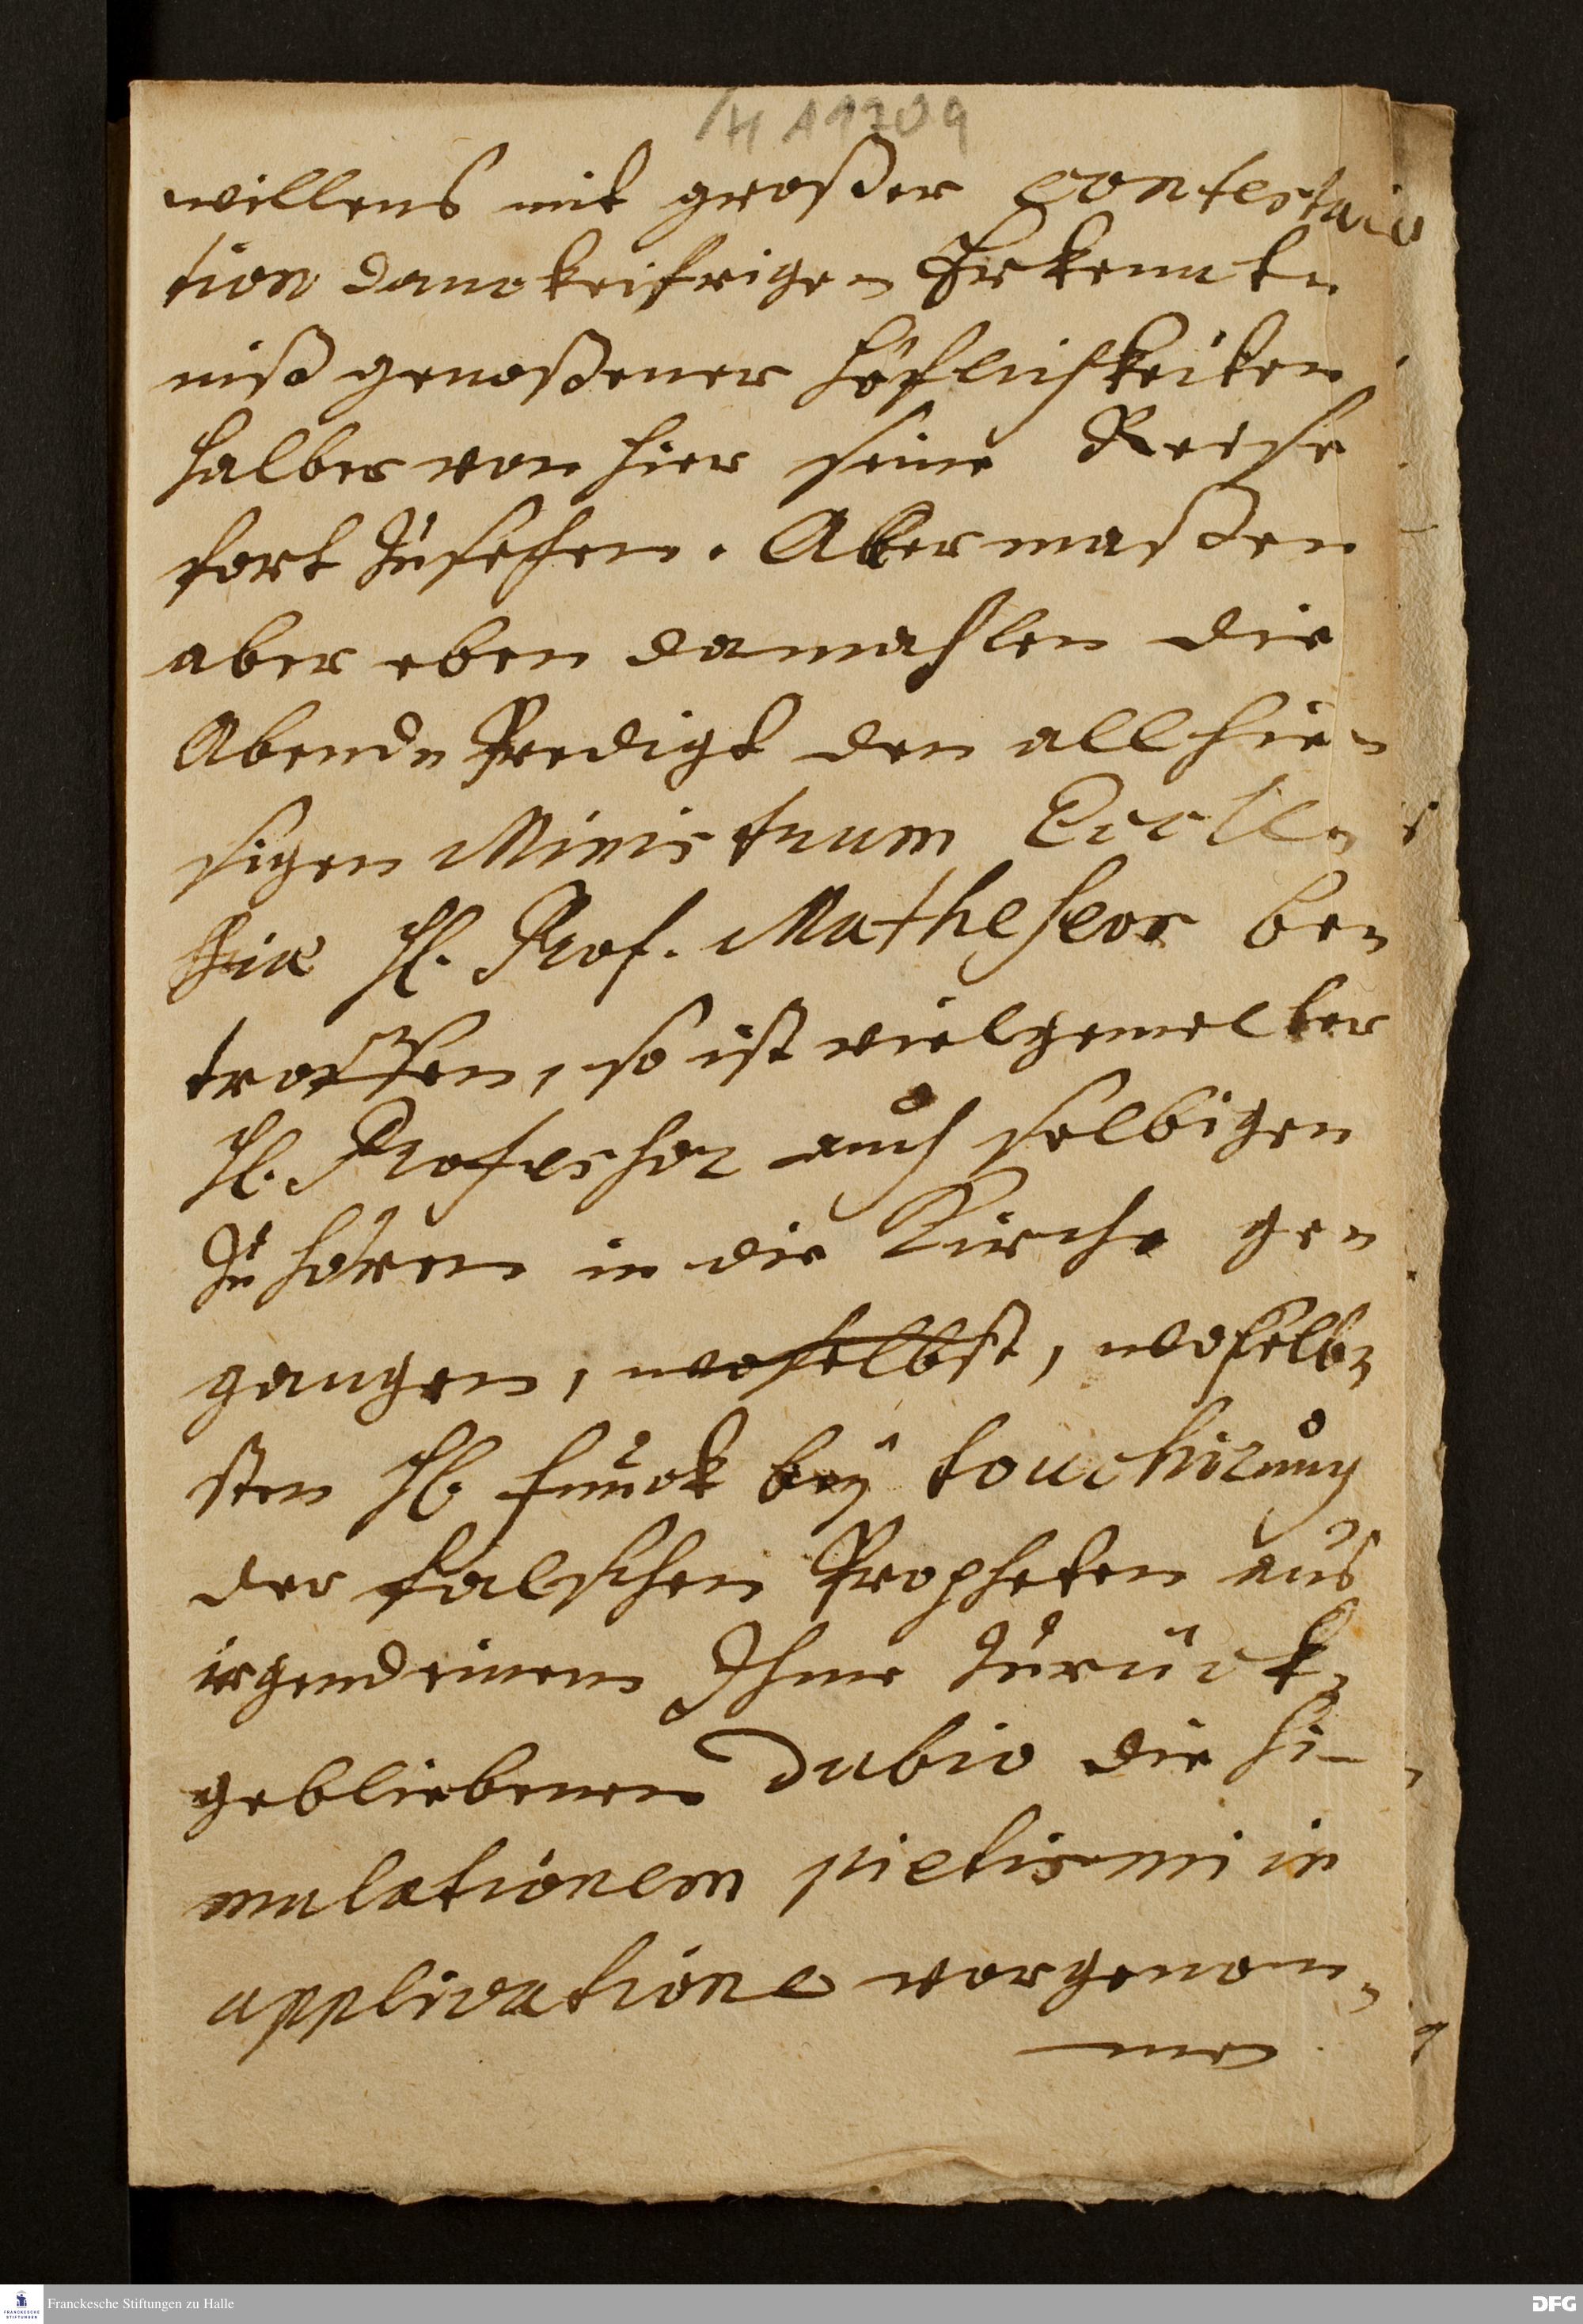 H A1709
willens mit großer contesta-
tion danckeifrigen Erkennt-
niß genoßener Höflichkeiten
halber von hier seine Reise
fort zusetzen. Aber maßen
aber eben damahlen die
Abend-Predigt den allhie-
sigen Ministrum Eccle-
siæ H. Prof. Matheseos be-
troffen, so ist vielgemelter
H. Professor auch selbigen
zu hören in die Kirche ge-
gangen, woselbst, woselb-
sten H. Funck bey touchirung
der falschen Propheten aus
irgend einem Ihme zurück-
gebliebenen Dubio die si-
mulationem pietismi in
applicatione vorgenom-
men
Franckesche Stiftungen zu Halle
FRANCKESCHE STIFTUNGEN
DFG